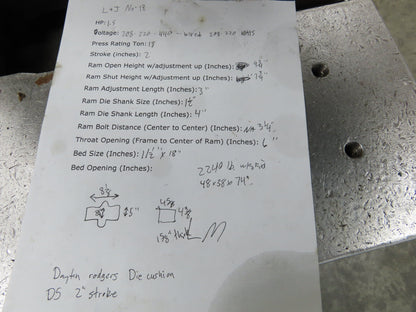 L & J No. 18
HP: 1.5
Voltage: 208-220-440 - wired 208-220 volts
Press Rating Ton: 18
Stroke (inches): 2
Ram Open Height w/Adjustment up (Inches):
Ram Shut Height w/Adjustment up (Inches):
Ram Adjustment Length (Inches): 3"
Ram Die Shank Size (Inches):
Ram Die Shank Length (Inches): 4"
Ram Bolt Distance (Center to Center) (Inches): 3 1/4"
Throat Opening (Frame to Center of Ram) (Inches): 6"
Bed Size (Inches): 11 1/2" x 18"
Bed Opening (Inches):
2240 lb. w/skid
48x58x74"
5"
Dayton rodgers Die cushion
DS 2" stroke